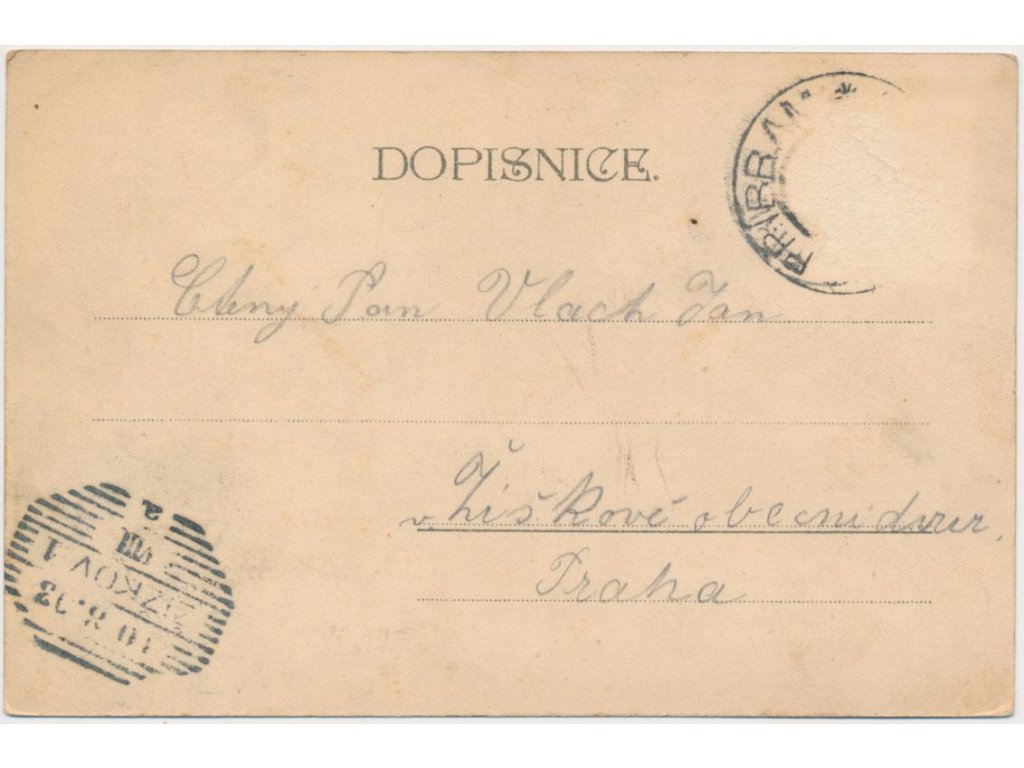 DOPISNICE.
PŘIBRAM
Ctěný Pan Vlach Jan
v Žiškově obecní dvur.
Praha
ŽIŽKOV 1
10.8.
VIII
a